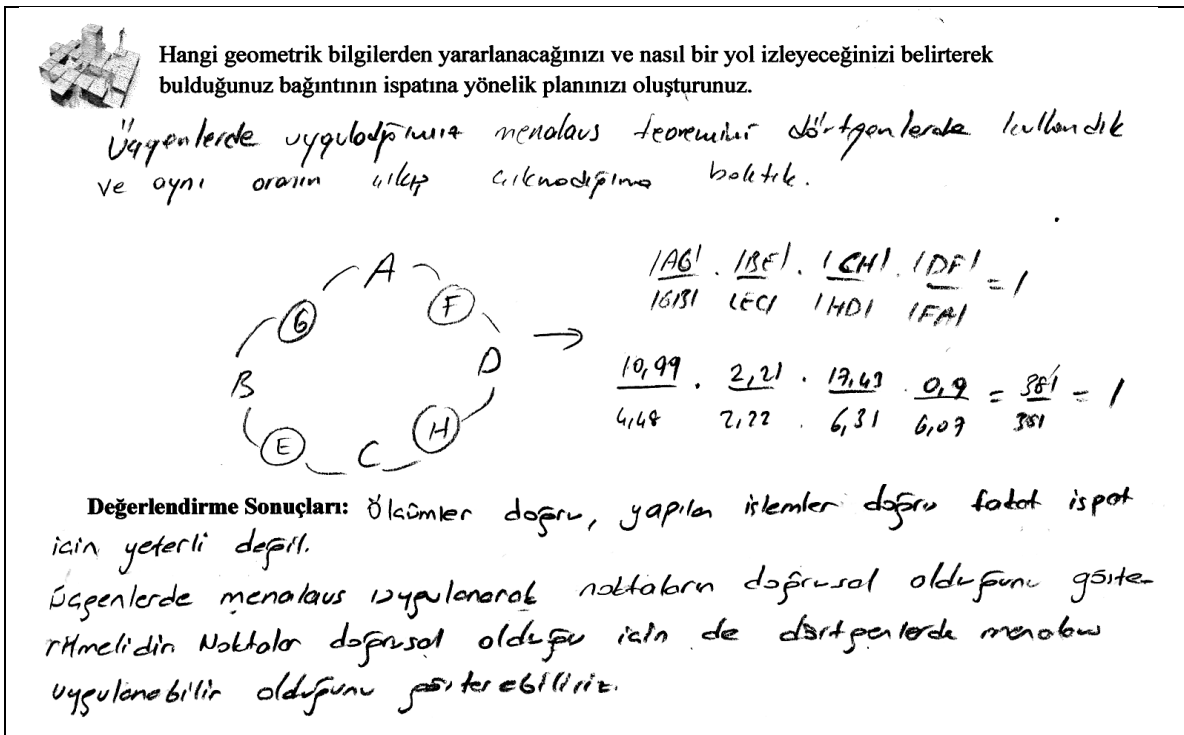 Hangi geometrik bilgilerden yararlanacağınızı ve nasıl bir yol izleyeceğinizi belirterek
bulduğunuz bağıntının ispatına yönelik planınızı oluşturunuz.
Üçgenlerde uyguladığımız menalaus teoremini dörtgenlerde kullandık
ve aynı oranın çıkıp çıkmadığına baktık.
A
G F
B D
E C H
|AG| . |BE| . |CH| . |DF| = 1
|GB| |EC| |HD| |FA|
10,99 . 2,21 . 17,43 . 0,9 = 381 = 1
4,48 2,22 . 6,31 6,07 381
Değerlendirme Sonuçları: Ölçümler doğru, yapılan işlemler doğru fakat ispat
için yeterli değil.
Üçgenlerde menalaus uygulanarak noktaların doğrusal olduğunu göste-
rilmelidir. Noktalar doğrusal olduğu için de dörtgenlerde menalaus
uygulanabilir olduğunu gösterebiliriz.